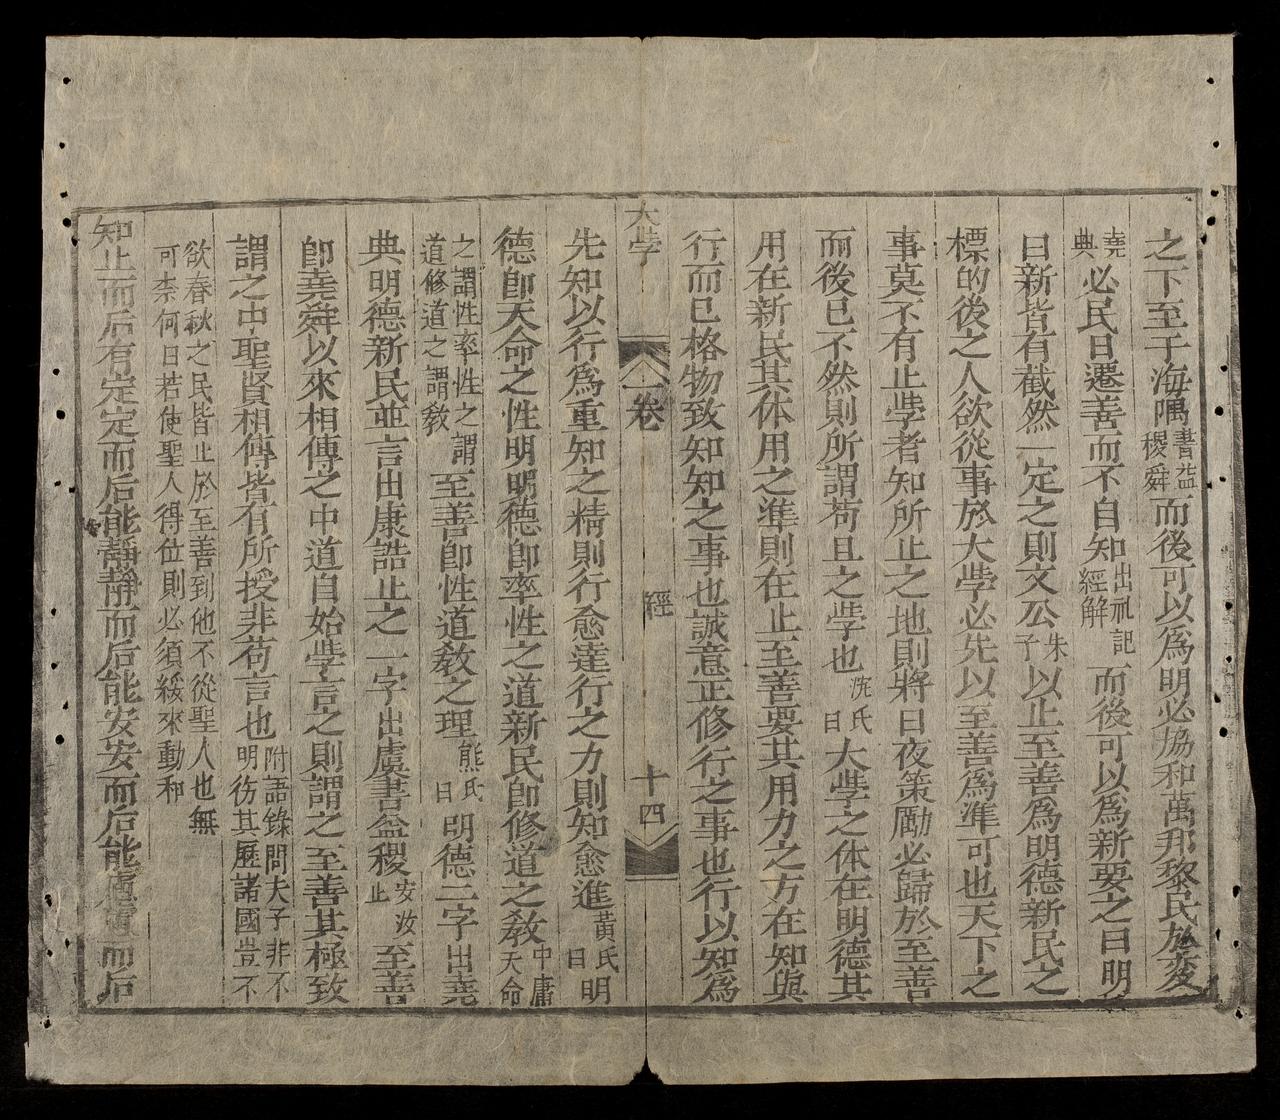 之下至于海隅書益稷舜而後可以爲明必協和萬邦黎民於变
堯典必民日遷善而不自知出礼記經解而後可以爲新要之曰明
曰新皆有截然一定之則文公朱子以止至善爲明德新民之
標的後之人欲從事於大斈必先以至善爲準可也天下之
事莫不有止斈者知所止之地則將日夜策勵必歸於至善
而後已不然則所謂苟且之斈也沈氏曰大斈之体在明德其
用在新民其体用之準則在止至善要其用力之方在知與
行而已格物致知知之事也誠意正修行之事也行以知爲
大斈 一卷 經 十四
先知以行爲重知之精則行愈達行之力則知愈進黃氏曰明
德即天命之性明明德即率性之道新民即修道之敎中庸天命
之謂性率性之謂道修道之謂敎至善即性道敎之理熊氏曰明德二字出堯
典明德新民並言出康誥止之一字出虞書益稷安汝止至善
即堯舜以來相傳之中道自始斈言之則謂之至善其極致
謂之中聖賢相傳皆有所授非苟言也附語錄問夫子非不明彷其歷諸國豈不
欲春秋之民皆止於至善到他不從聖人也無可柰何曰若使聖人得位則必須綏來動和
知止而后有定定而后能靜靜而后能安安而后能慮慮而后